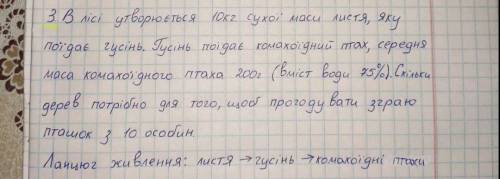 3. В лісі утворюється 10кг сухої маси листя, яку
поїдає гусінь. Гусінь поїдає комахоїдний птах, середня
маса комахоїдного птаха 200г (вміст води 75%). Скільки
дерев потрібно для того, щоб прогодувати зграю
пташок з 10 особин.
Ланцюг живлення: листя → гусінь → комахоїдні птахи